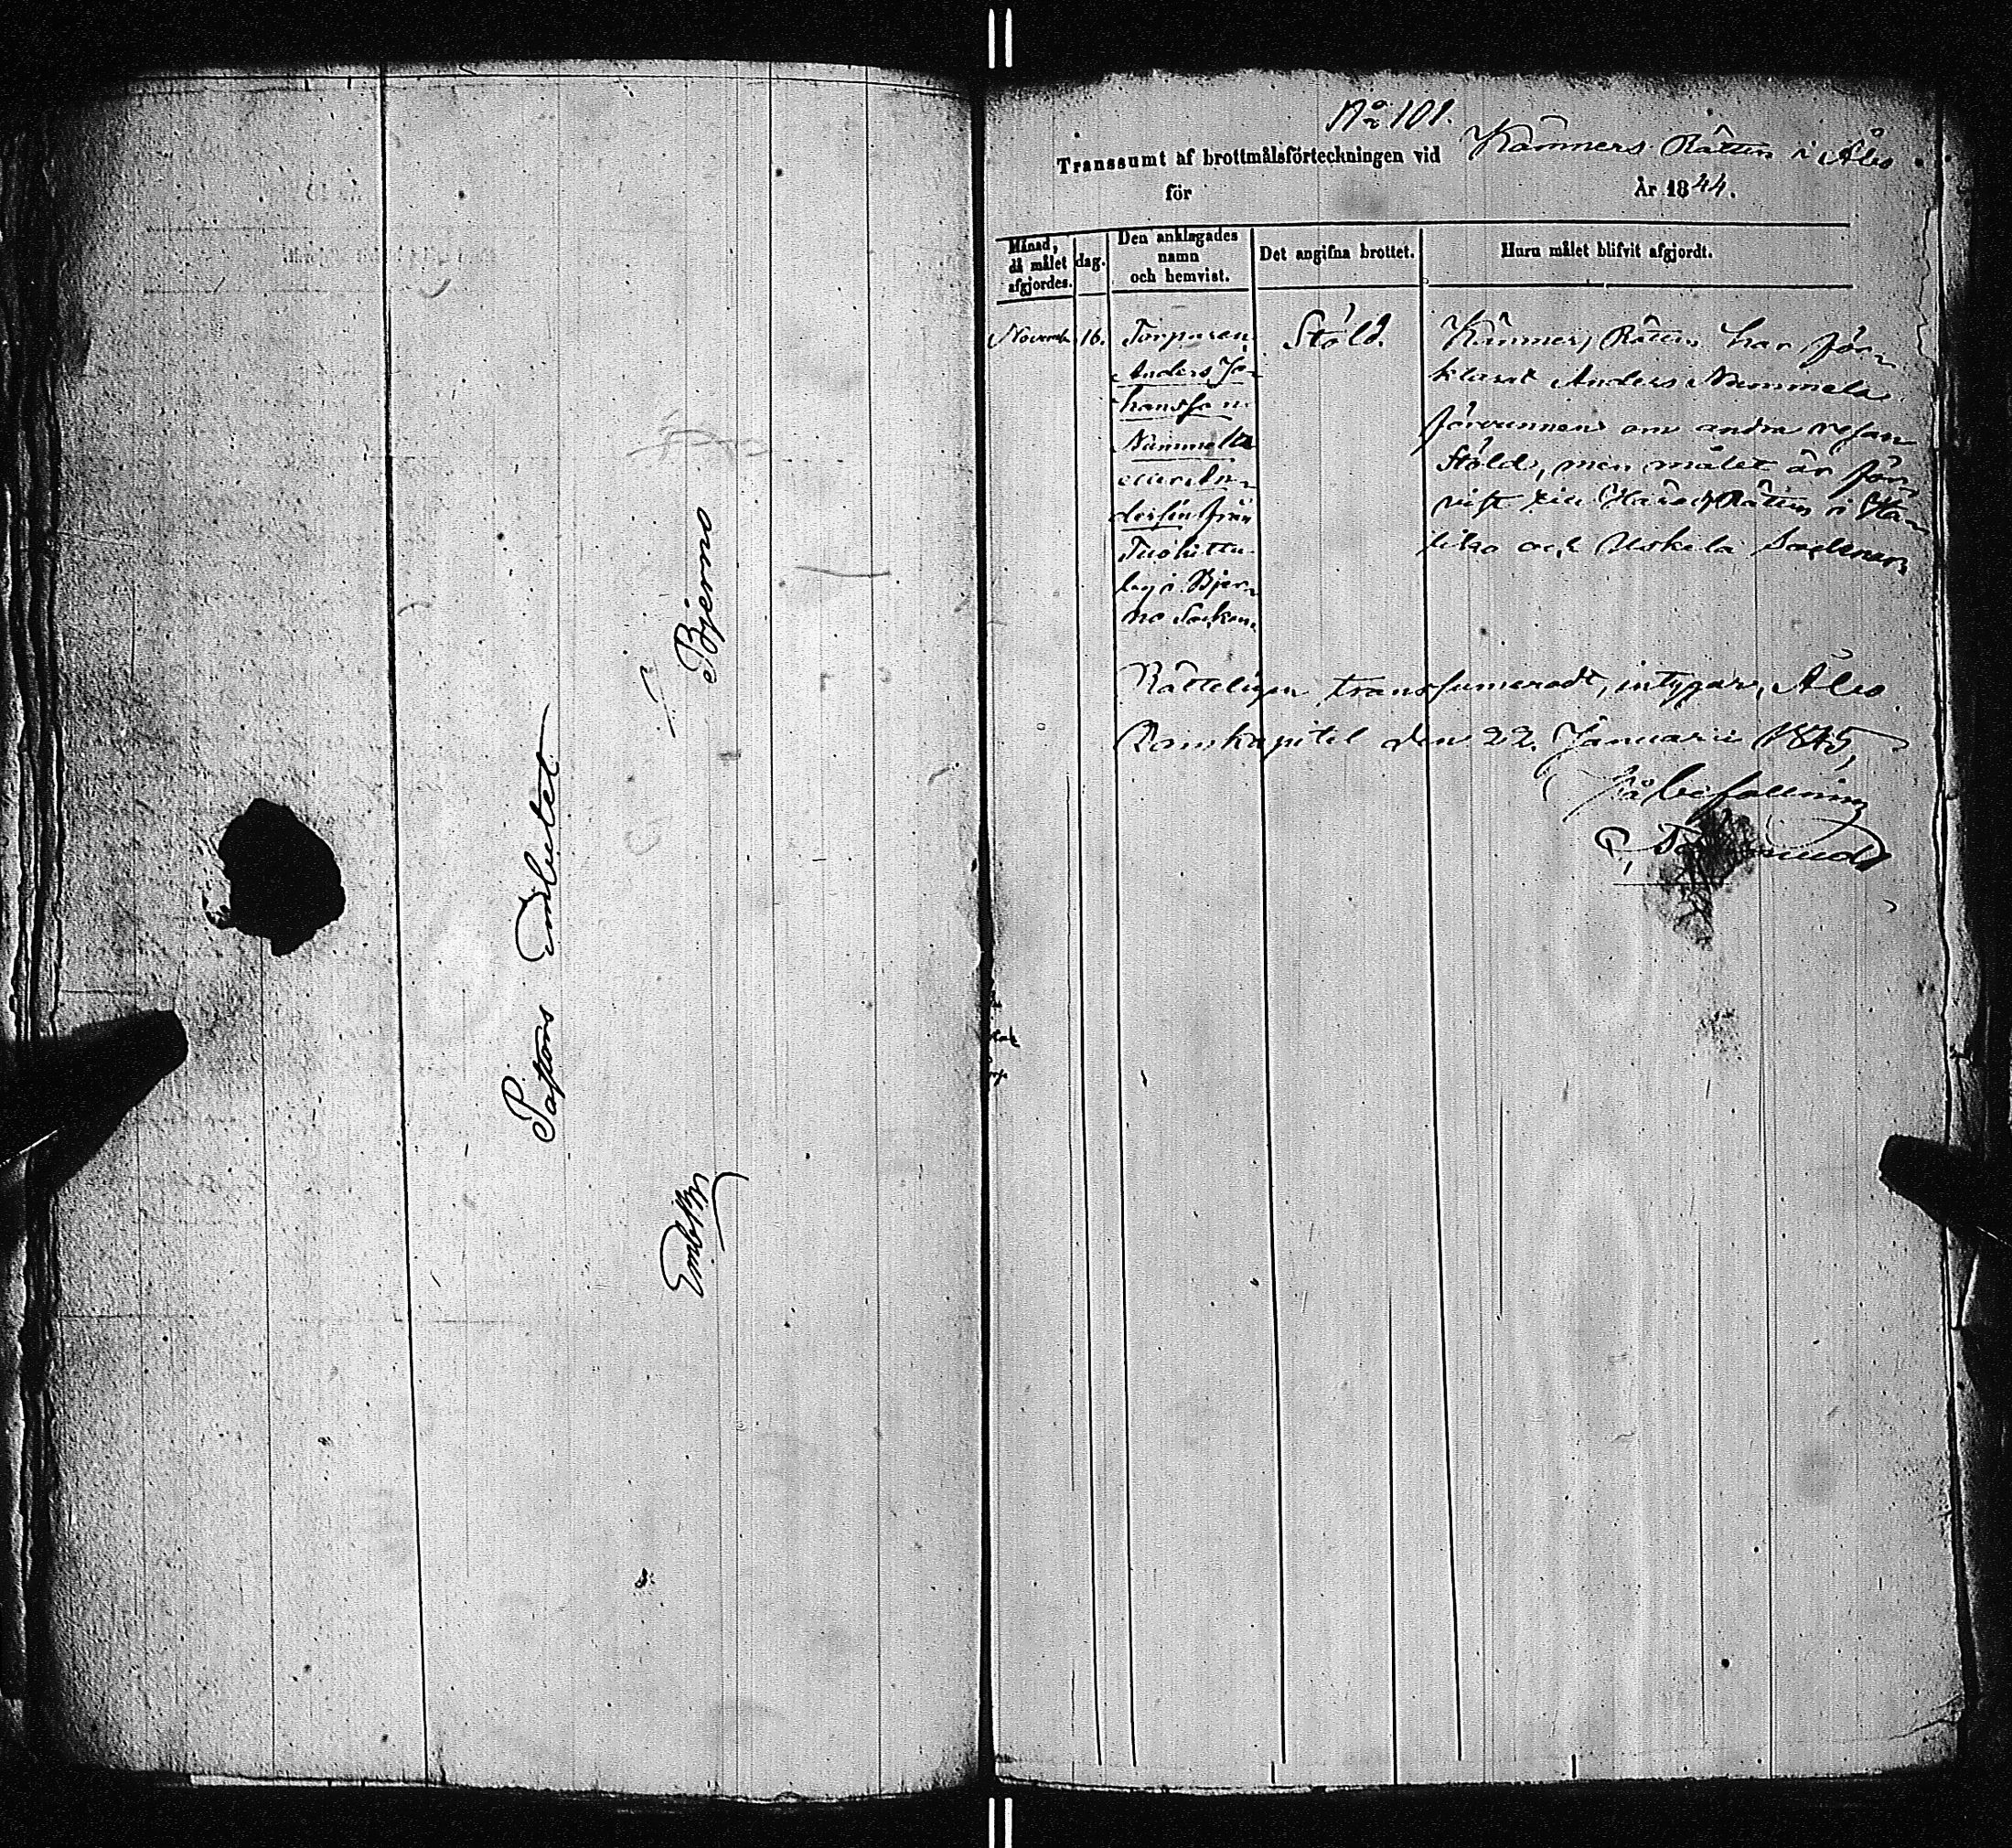 Pastors Embetet
i Bjerno
Embtbr
No 101.
Transsumt af brottmålsförteckningen vid Kämners Rätten i Åbo
för År 1844.
Månad, då målet afgjordes.
dag.
Den anklagades namn och hemvist.
Det angifna brottet.
Huru målet blifvit afgjordt.
Novemb.
16.
Torparen
Anders Jo-
hansson
Nummela
eller An-
dersén från
by i Bjer-
no Socken.
Stöld.
Kämners Rätten har för-
klarat Anders Nummela
förvunnen om andra resan
Stöld, men målet är för-
vist till Härads Rätten i Ha-
liko och Uskela Socknar.
Rätteligen transsumeradt, intygar, Åbo
Domkapitel den 22 Januari 1845,
På befallning